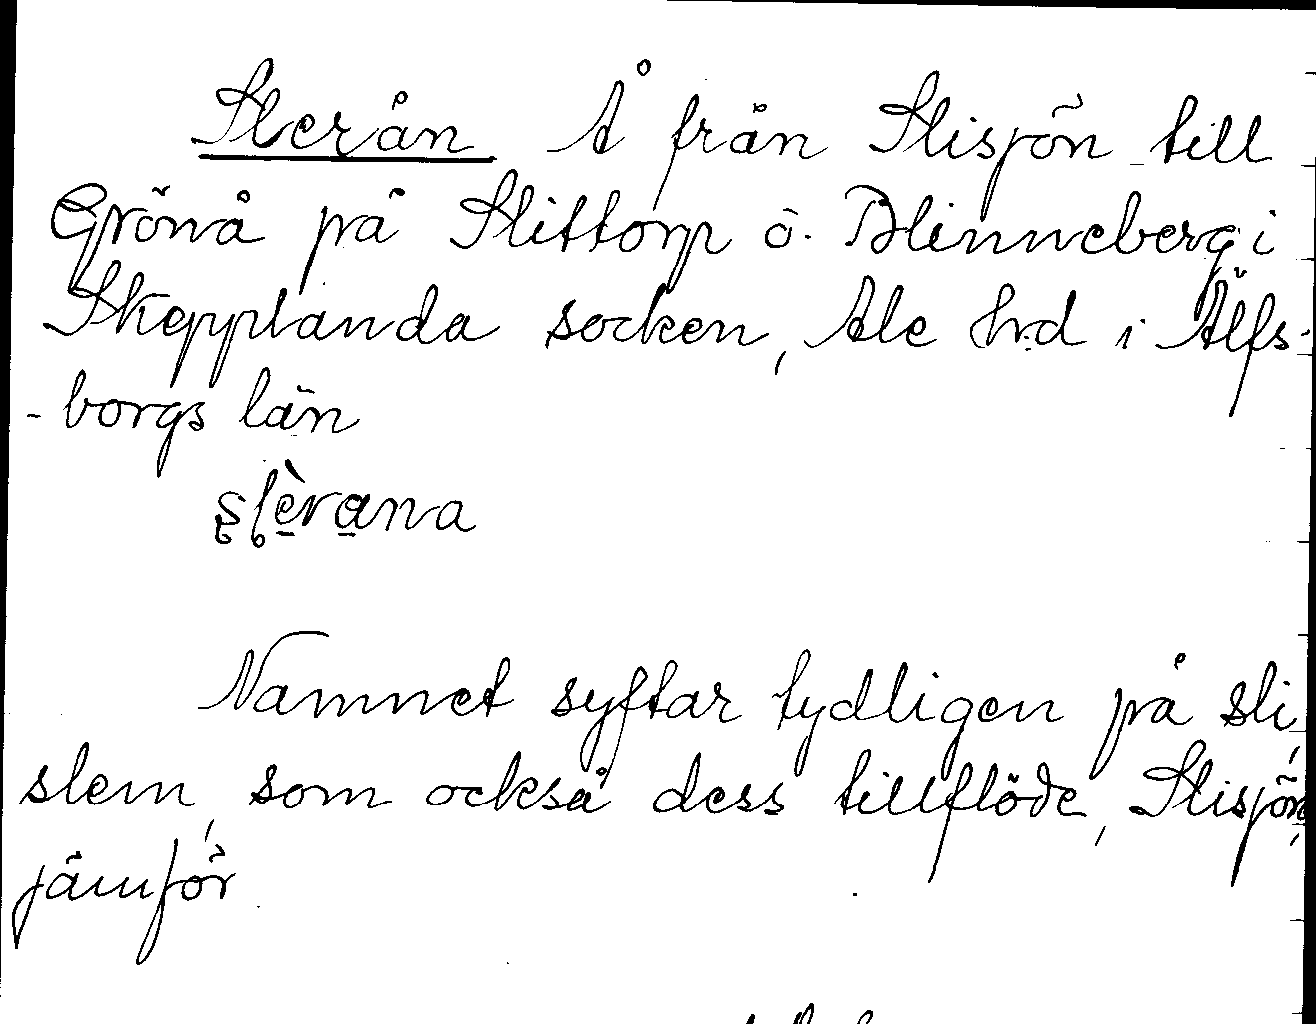 Slerån Å från Slisjön till
Grönå på Slittorp o. Blinneberg i
Skepplanda socken, Ale hrd i Älfs-
-borgs län
slèrana
Namnet syftar tydligen på sli,
slem, som också dess tillflöde, Slisjön,
jämför